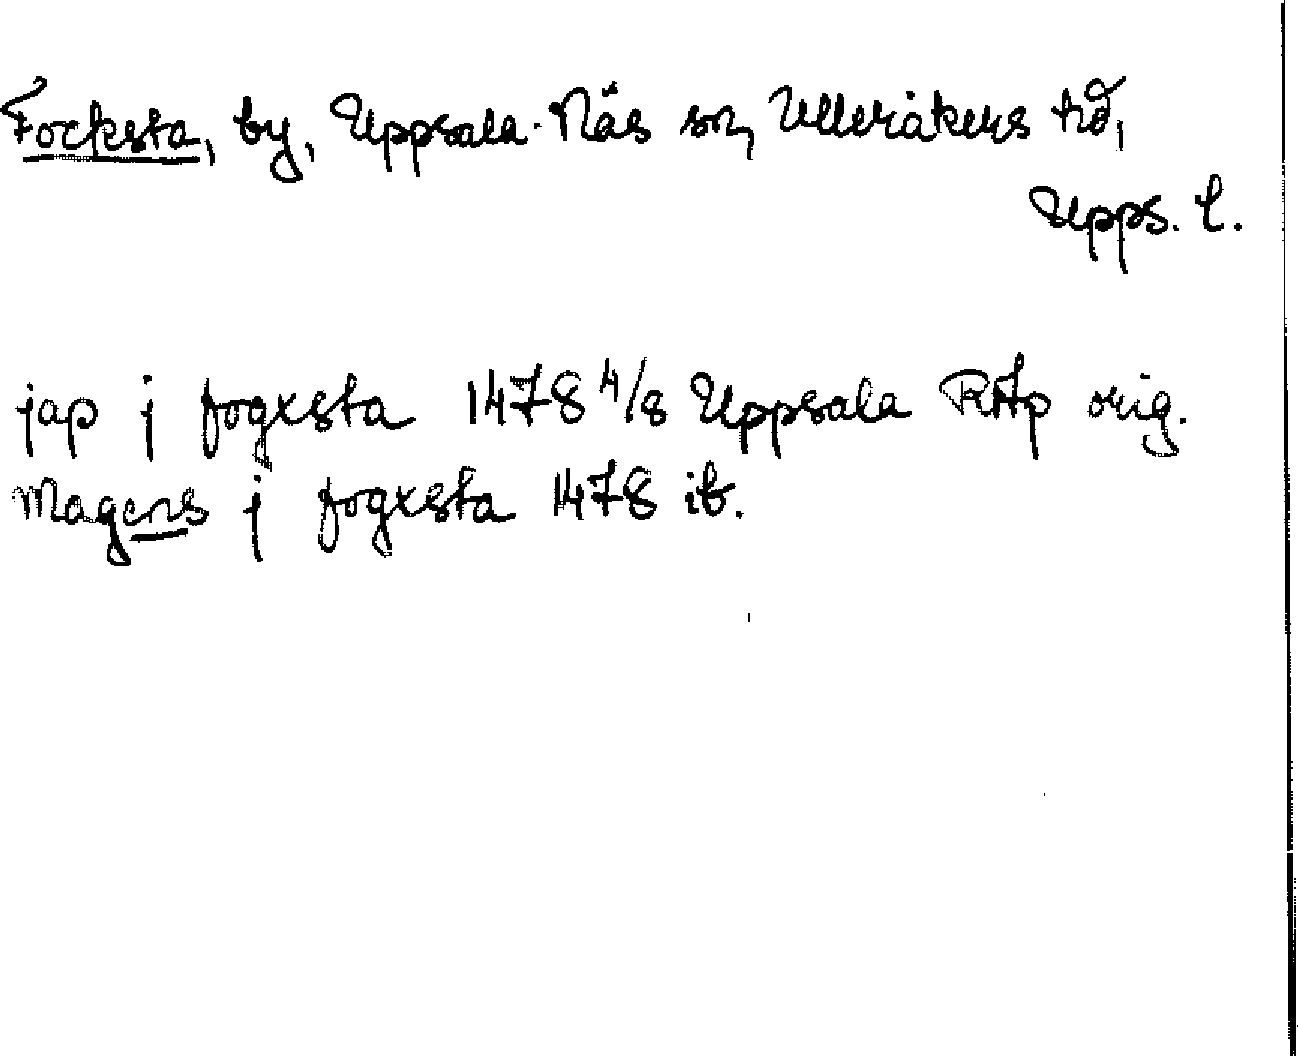 Focksta, by, Uppsala-Näs sn, Ulleråkers hd,
Upps. l.
jap j fogxsta 1478 4/8 Uppsala RAp orig.
Magens j fogxsta 1478 ib.